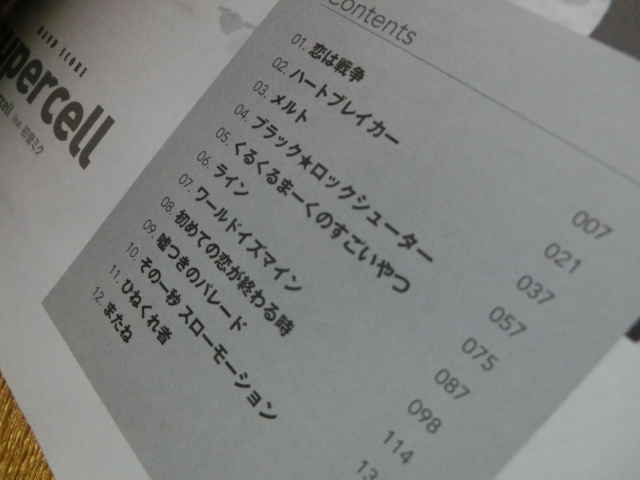 BAND SCORE
supercell
supercell feat. 初音ミク
Contents
01. 恋は戦争 007
02. ハートブレイカー 021
03. メルト 037
04. ブラック★ロックシューター 057
05. くるくるまーくのすごいやつ 075
06. ライン 087
07. ワールドイズマイン 098
08. 初めての恋が終わる時 114
09. 嘘つきのパレード
10. その一秒 スローモーション
11. ひねくれ者
12. またね